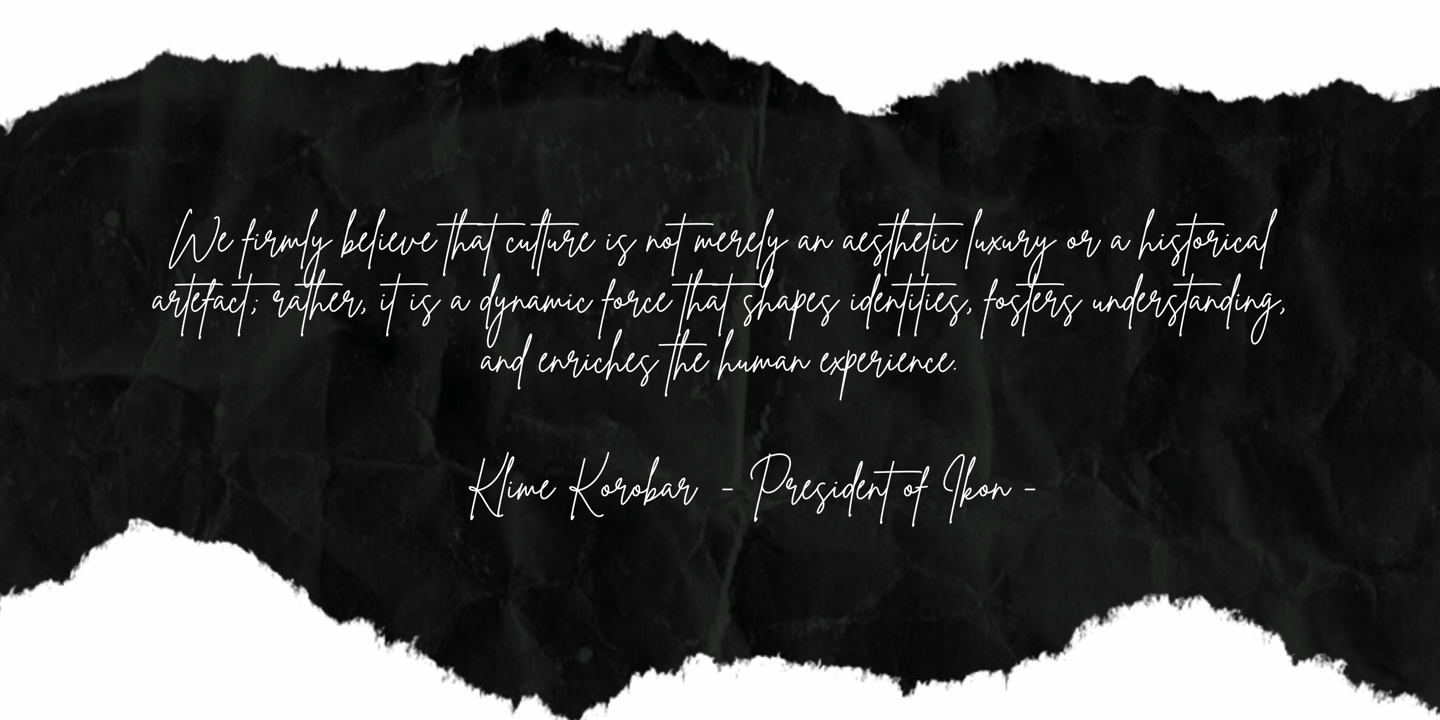 We firmly believe that culture is not merely an aesthetic luxury or a historical
artefact; rather, it is a dynamic force that shapes identities, fosters understanding,
and enriches the human experience.
Klime Korobar - President of Ikon -